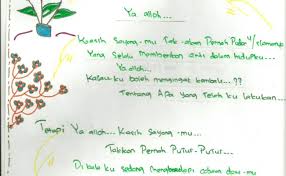 Ya alloh...
Kasih Sayang-mu Tak akan Pernah Pudar u/ slamanya
Yang selalu memberikan arti dalam hidupku...
Ya alloh...
Kalau ku boleh mengingat kembali...??
Tentang Apa yang Telah ku lakukan...
Tetapi Ya alloh... Kasih Sayang-mu...
Takkan Pernah Putus-Putus...
Dikala ku sedang menghadapi cobaan dari-mu